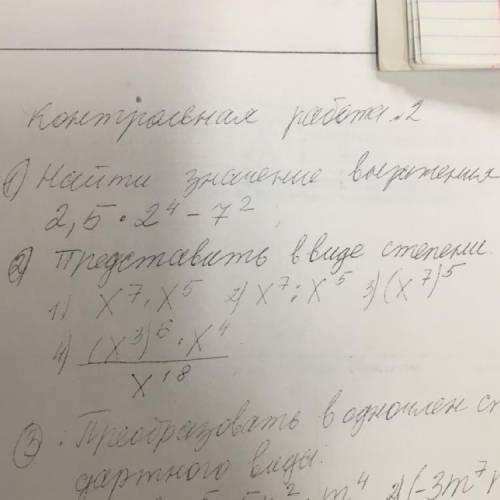 Контрольная работа №2
1) Найти значение выражения
2,5 · 2⁴ − 7²
2) Представить в виде степени.
1) x⁷ · x⁵ 2) x⁷ : x⁵ 3) (x⁷)⁵
4) (x³)⁶ · x⁴
x¹⁸
3 . Преобразовать в одночлен ст
дартного виды.
m⁴ 2) (-3m⁷